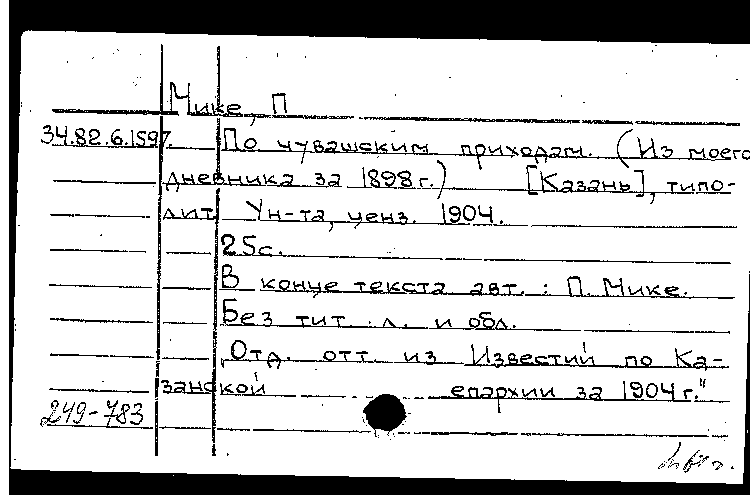 Мике, П
34.82.6.1597. По чувашским приходам. (Из моего
дневника за 1898 г.) [Казань], типо-
лит Ун-та, ценз. 1904.
25с.
В конце текста авт. : П. Мике.
Без тит. л. и обл.
"Отд. отт. из Известий по Ка-
занской епархии за 1904 г."
249-783